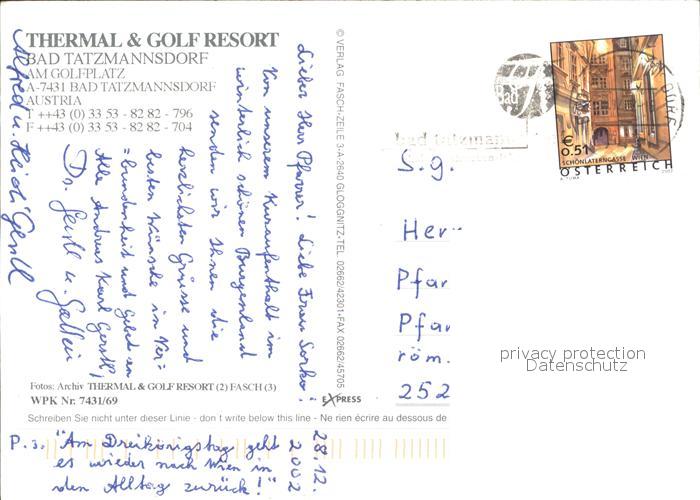 THERMAL & GOLF RESORT
BAD TATZMANNSDORF
AM GOLFPLATZ
A-7431 BAD TATZMANNSDORF
AUSTRIA
T ++43 (0) 33 53 - 82 82 - 796
F ++43 (0) 33 53 - 82 82 - 704
Lieber Herr Pfarrer! Liebe Frau
Von unserem Kuraufenthalt im
winterlich schönen Burgenland
senden wir Ihnen die
herzlichsten Grüsse und
besten Wünsche in Ver-
=bundenheit und
Alle Andreas Karl Gerstl,
Dr. Gerstl u. Gattin
Alfred u. Heidi Gerstl
28.12.
2002
P.S. "Am Dreikönigstag geht
es wieder nach Wien in
den Alltag zurück!"
Fotos: Archiv THERMAL & GOLF RESORT (2) FASCH (3)
WPK Nr. 7431/69
EXPRESS
Schreiben Sie nicht unter dieser Linie - don t write below this line - Ne rien écrire au dessous de
© VERLAG FASCH-ZEILE 3-A-2640 GLOGGNITZ-TEL. 02662/42301-FAX 02662/45705
Bad
bad tatzmann
€
0.51
SCHÖNLATERNGASSE WIEN
ÖSTERREICH
2002
S. g.
Her
Pfar
Pfar
röm.
252
privacy protection
Datenschutz